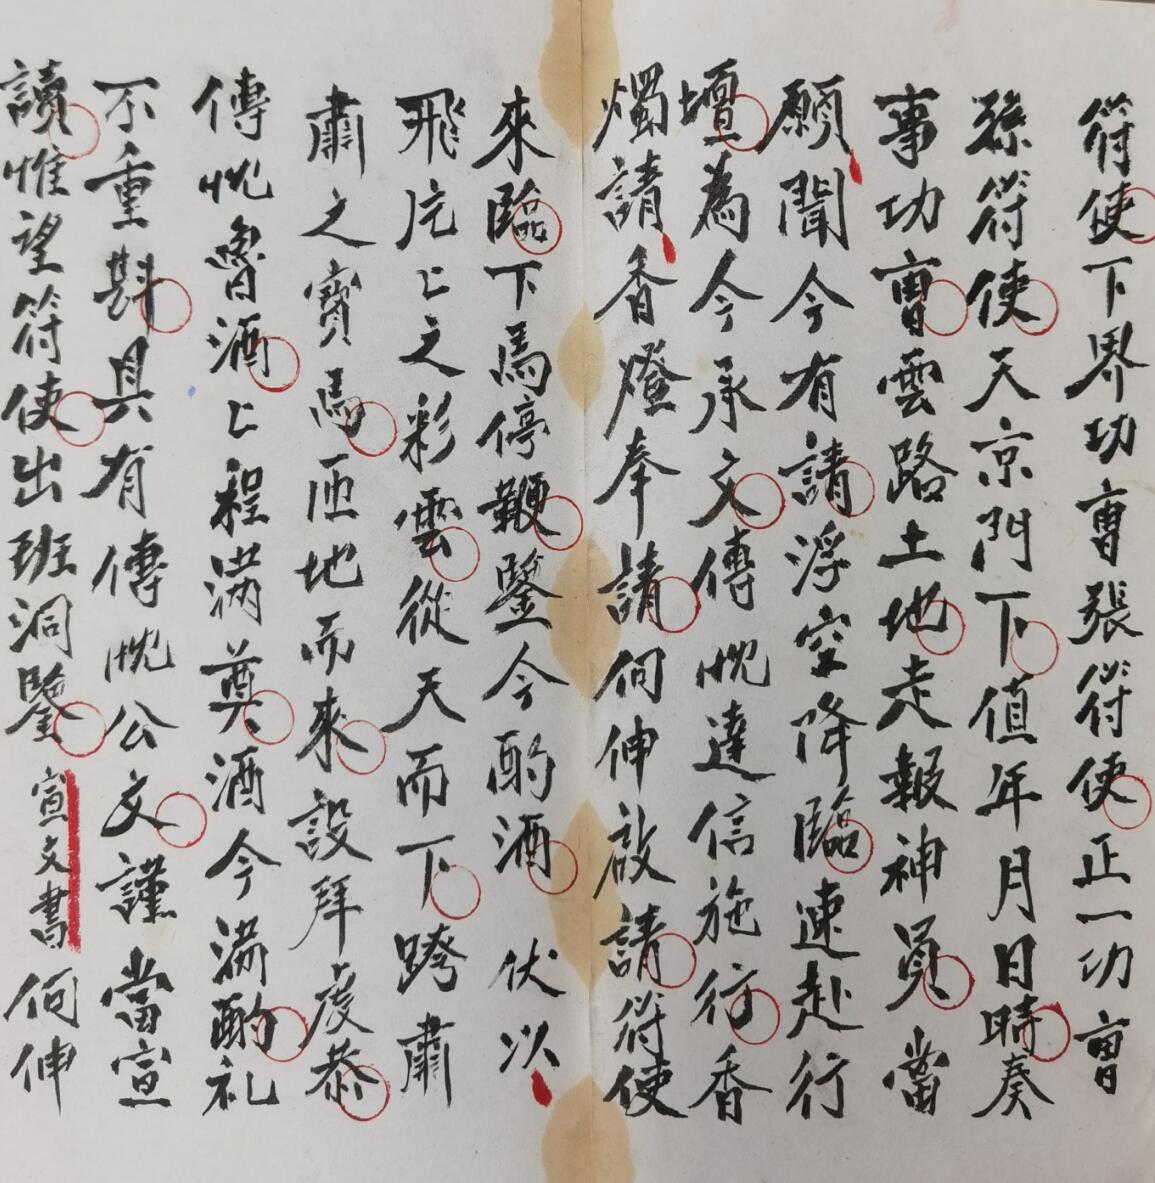 符使下界功曹張符使正一功曹
孫符使天京門下值年月日時奏
事功曹雲路土地走報神員當
願聞今有請浮空降臨速赴行
壇為今承文傳忱達信施行香
燭請香燈奉請何伸啟請符使
來臨下馬停鞭鑒今酌酒伏以
飛片〻之彩雲從天而下跨肅
肅之寶馬匝地而來設拜虔恭
傳忱魯酒〻程滿奠酒今滿酌礼
不重斟具有傳忱公文謹當宣
讀惟望符使出班洞鑒宣文書何伸